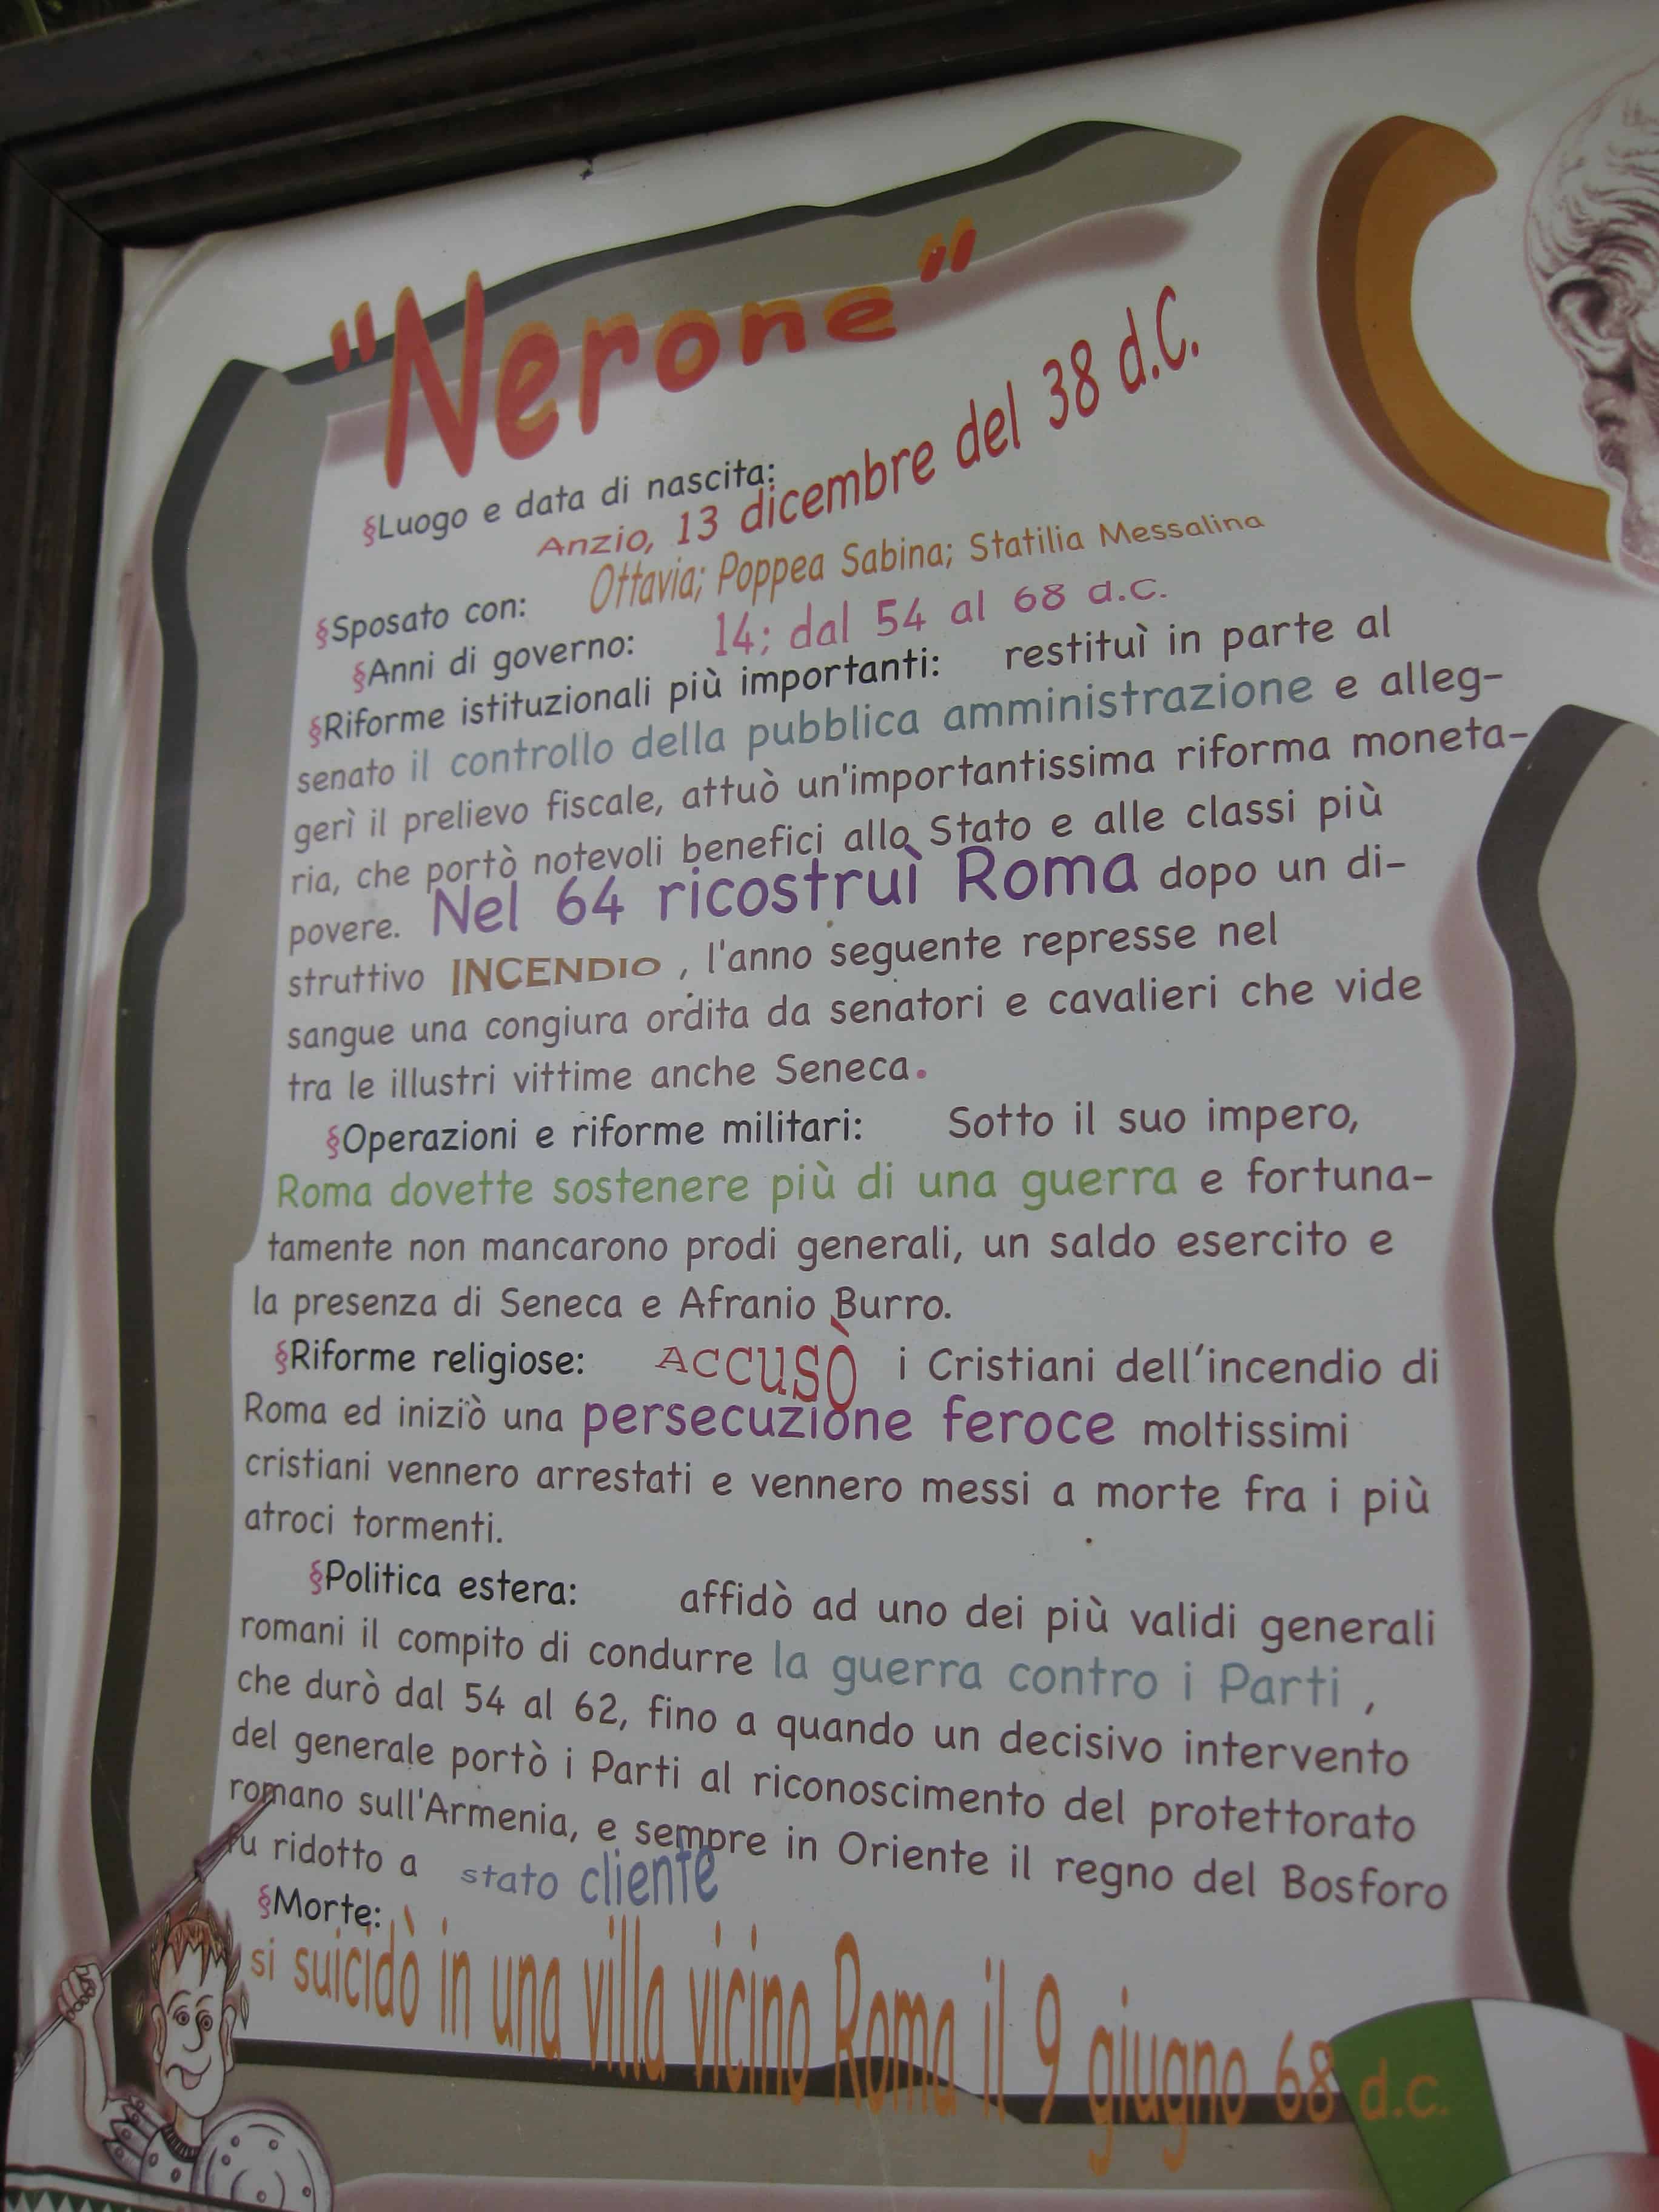 "Nerone"
§Luogo e data di nascita:
Anzio, 13 dicembre del 38 d.C.
§Sposato con: Ottavia; Poppea Sabina; Statilia Messalina
§Anni di governo: 14; dal 54 al 68 d.C.
§Riforme istituzionali più importanti: restituì in parte al
senato il controllo della pubblica amministrazione e alleg-
gerì il prelievo fiscale, attuò un'importantissima riforma moneta-
ria, che portò notevoli benefici allo Stato e alle classi più
povere. Nel 64 ricostruì Roma dopo un di-
struttivo INCENDIO , l'anno seguente represse nel
sangue una congiura ordita da senatori e cavalieri che vide
tra le illustri vittime anche Seneca.
§Operazioni e riforme militari: Sotto il suo impero,
Roma dovette sostenere più di una guerra e fortuna-
tamente non mancarono prodi generali, un saldo esercito e
la presenza di Seneca e Afranio Burro.
§Riforme religiose: ACCUSÒ i Cristiani dell'incendio di
Roma ed iniziò una persecuzione feroce moltissimi
cristiani vennero arrestati e vennero messi a morte fra i più
atroci tormenti.
§Politica estera: affidò ad uno dei più validi generali
romani il compito di condurre la guerra contro i Parti ,
che durò dal 54 al 62, fino a quando un decisivo intervento
del generale portò i Parti al riconoscimento del protettorato
romano sull'Armenia, e sempre in Oriente il regno del Bosforo
fu ridotto a stato cliente
§Morte:
si suicidò in una villa vicino Roma il 9 giugno 68 d.c.